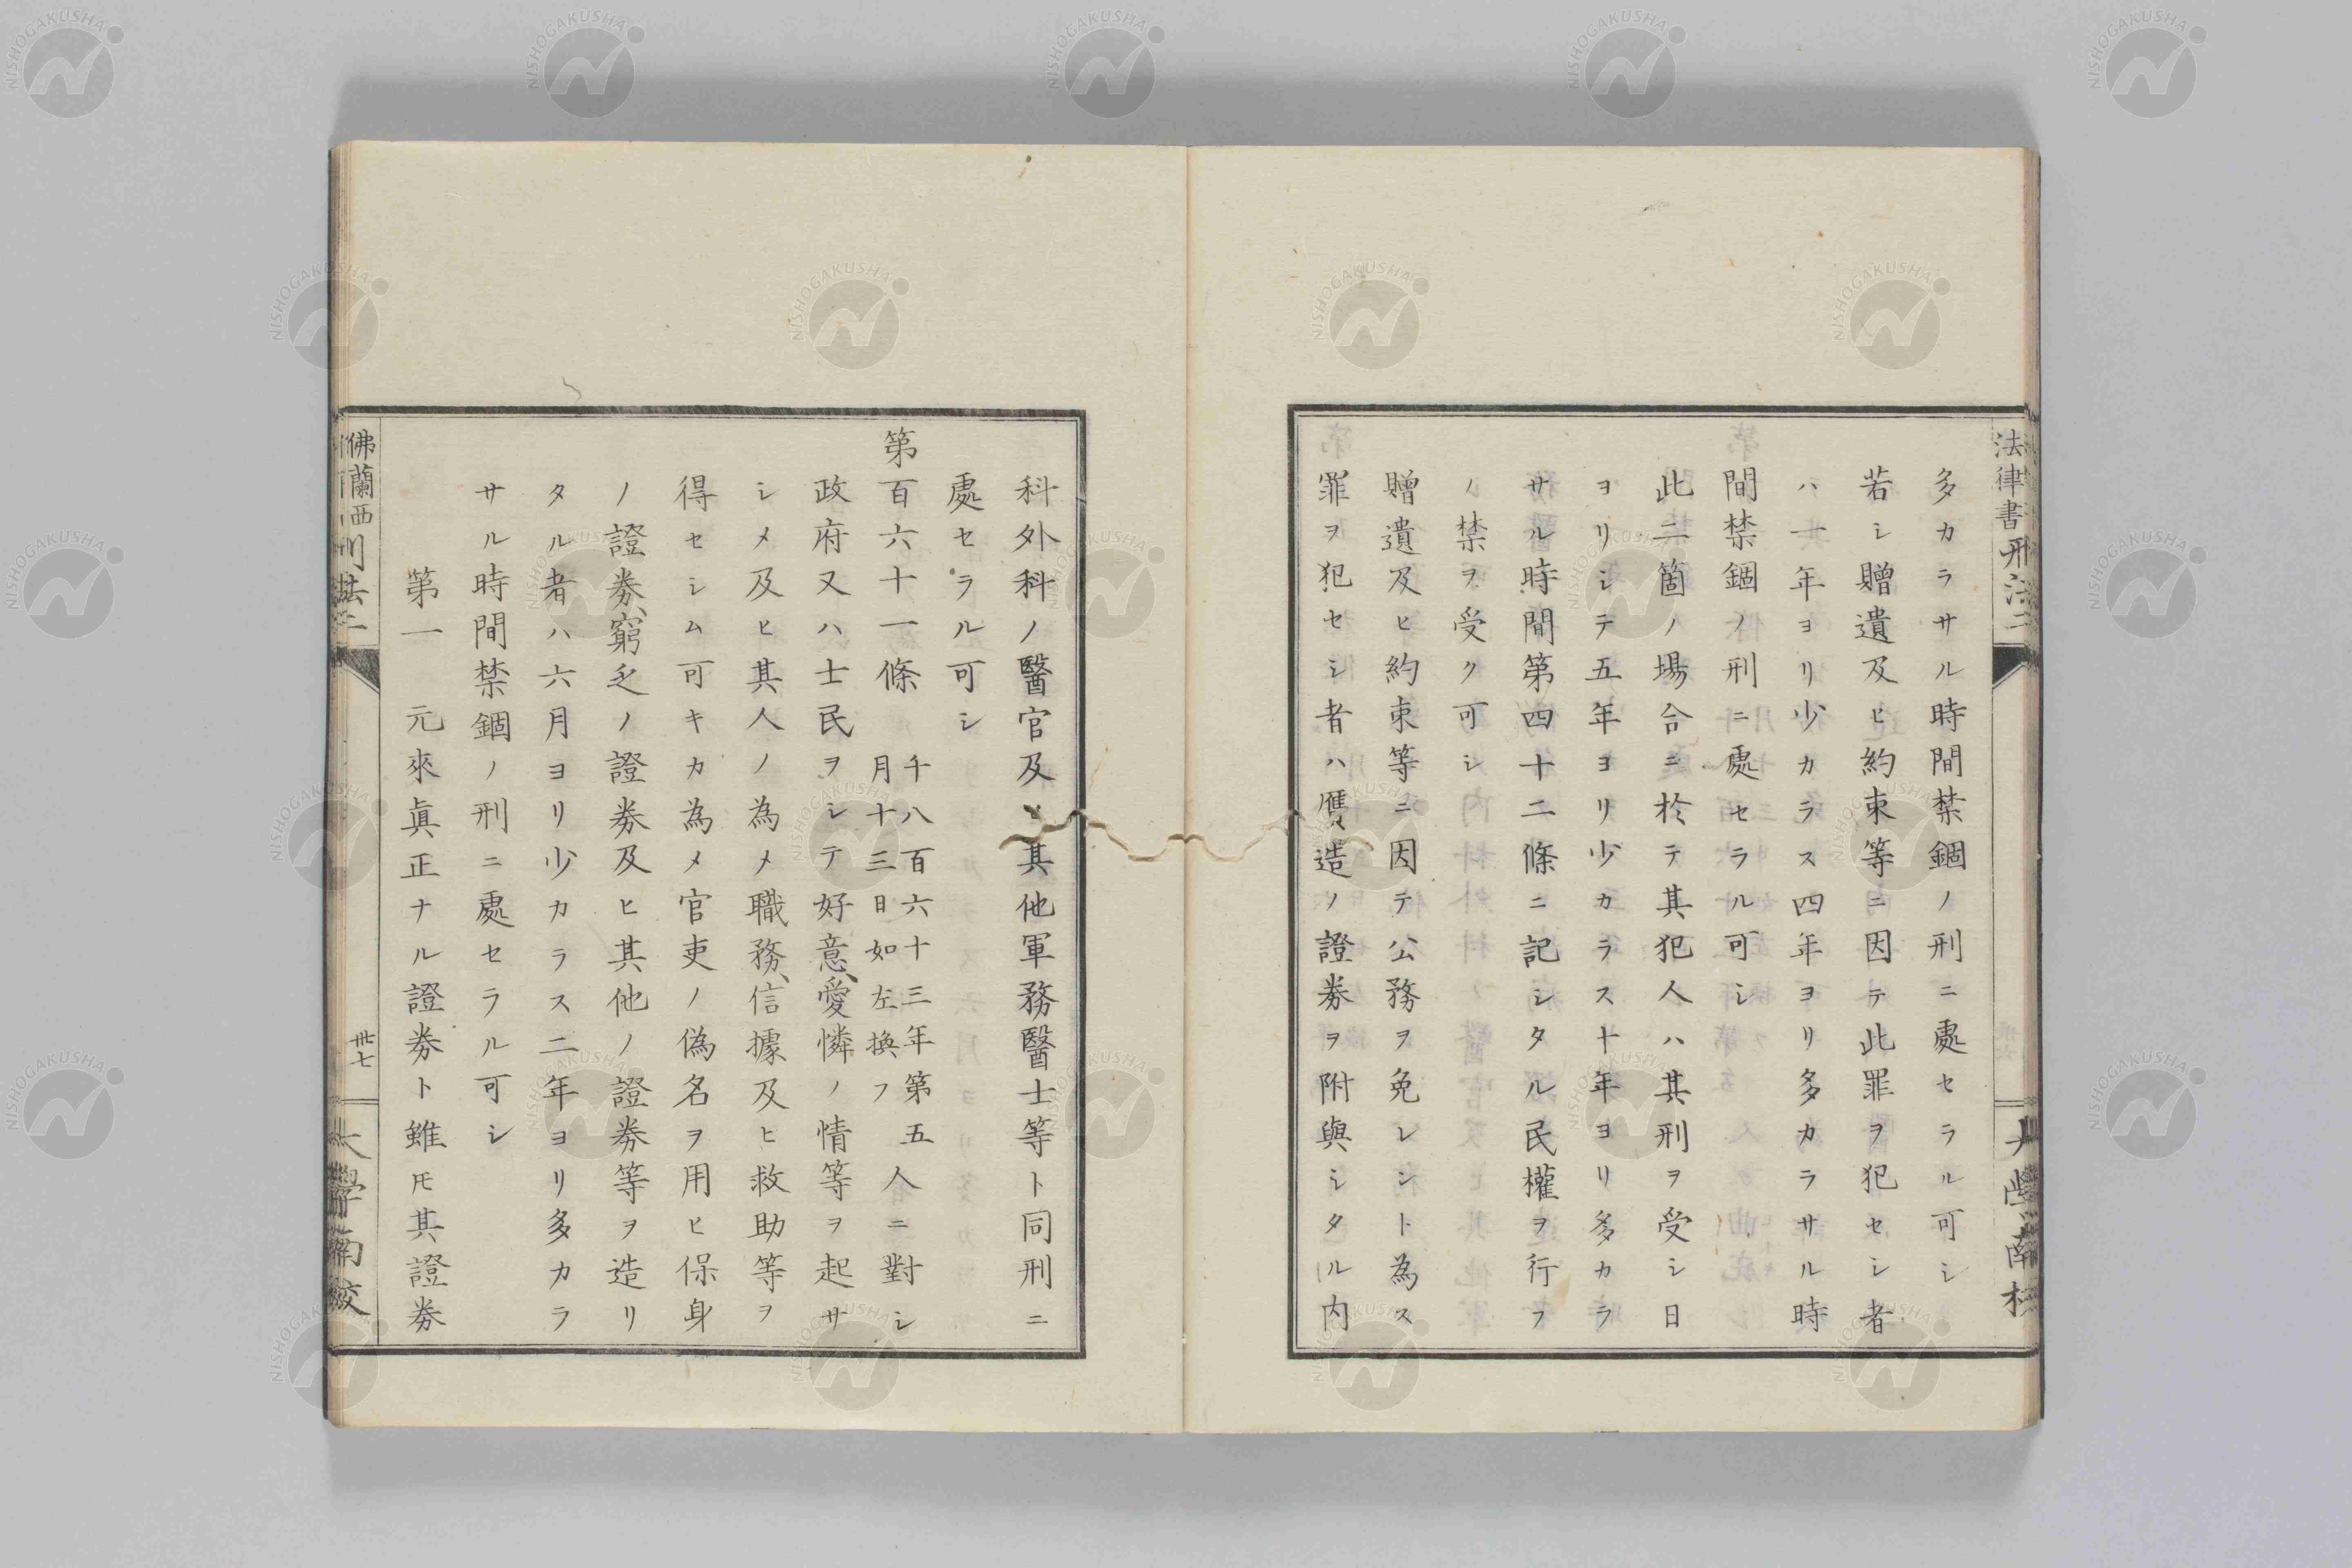 多カラサル時間禁錮ノ刑ニ處セラル可シ
若シ贈遺及ヒ約束等ニ因テ此罪ヲ犯セシ者
ハ一年ヨリ少カラス四年ヨリ多カラサル時
間禁錮ノ刑ニ處セラル可シ
此二箇ノ場合ニ於テ其犯人ハ其刑ヲ受シ日
ヨリシテ五年ヨリ少カラス十年ヨリ多カラ
サル時間第四十二條ニ記シタル民權ヲ行フ
ノ禁ヲ受ク可シ
贈遺及ヒ約束等ニ因テ公務ヲ免レント為ス
罪ヲ犯セシ者ハ贋造ノ證券ヲ附與シタル内
科外科ノ醫官及ヒ其他軍務醫士等ト同刑ニ
處セラル可シ
第百六十一條 千八百六十三年第五月十三日如左換フ 人ニ對シ
政府又ハ士民ヲシテ好意、愛憐ノ情等ヲ起サ
シメ及ヒ其人ノ為メ職務、信據及ヒ救助等ヲ
得セシム可キカ為メ官吏ノ偽名ヲ用ヒ保身
ノ證券、窮乏ノ證券及ヒ其他ノ證券等ヲ造リ
タル者ハ六月ヨリ少カラス二年ヨリ多カラ
サル時間禁錮ノ刑ニ處セラル可シ
第一 元來眞正ナル證券ト雖𪜈其證券
法律書刑法二
大學南校
佛蘭西
卅七
大學南校
NISHOGAKUSHA